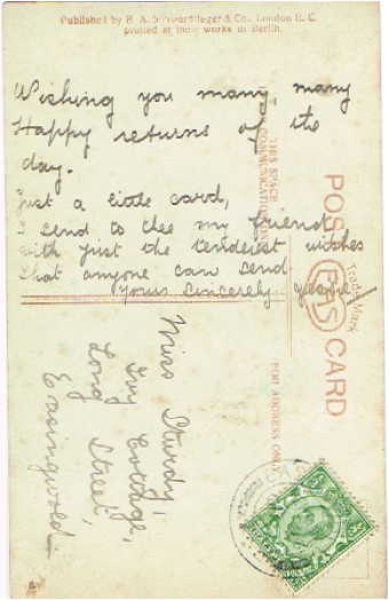 Published by E. A. Schwerdtfeger & Co., London E. C.
printed at their works in Berlin.
Wishing you many, many
Happy returns of the
day.
Just a little card,
I send to thee my friend
with just the tenderest wishes
that anyone can send
yours sincerely
THIS SPACE
COMMUNICATION
POST CARD
EAS
Trade Mark
FOR ADDRESS ONLY
Miss Sturdy,
Ivy Cottage,
Long Street,
Easingwold